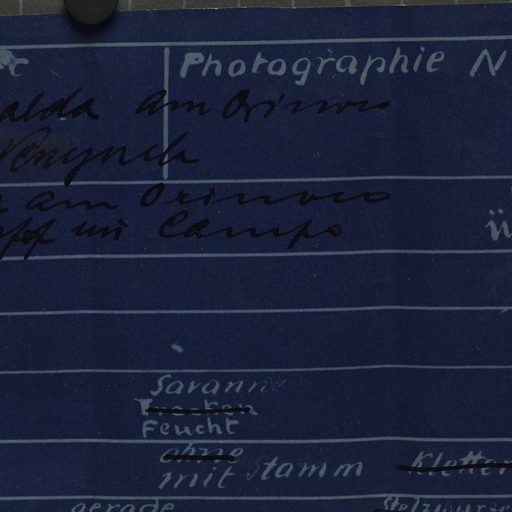 Photographie N
alda am Orinoco
am Orinoco
im Campo
Savanne
Trocken
Feucht
ohne
mit Stamm Kletter
gerade Stelzwurze